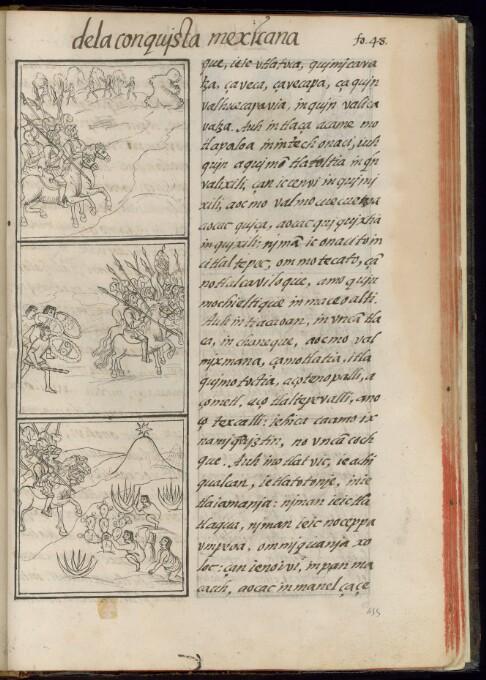 de la conquista mexicana
fo. 48.
que, ie ic vtlatixa, quinmicava
tza, ça veca, çavecapa, ça qujn
valhuecapavia, in qujn valica
vatza. Auh in tlaca acame mo
tlapaloa inintech onaci, iuh
valixili, çan ic cenvi in qujmj
xili, aocmo valmocuecuetzoa
aocac qujça, aocac qujqujxtia
in qujxili: njmã ic onacito in
citlaltepec, ommotecato, çã
notlalcavililoque, amo qujn
mochieltique in maceoalti.
Auh in tlacaoan, in vncã tla
ca, in chaneque, aocmo val
mixmana, çamotlatia, itla
qujmotoctia, aço tenopalli, a
çometl, aço tlaltepevalli, ano
ço texcalli: iehica caamo ix
namiqujztin, no vncã coch
que. Auh inotlatvic, ie achi
qualcan, ie tlatotonje, in ie
tlaiamanja: njman ie ic tla
tlaqua, njman ie ic no ceppa
vmpeoa, ommiquanja xo
loc: çan ie no ivi, in pan ma
cach, aocac in manel çaçe